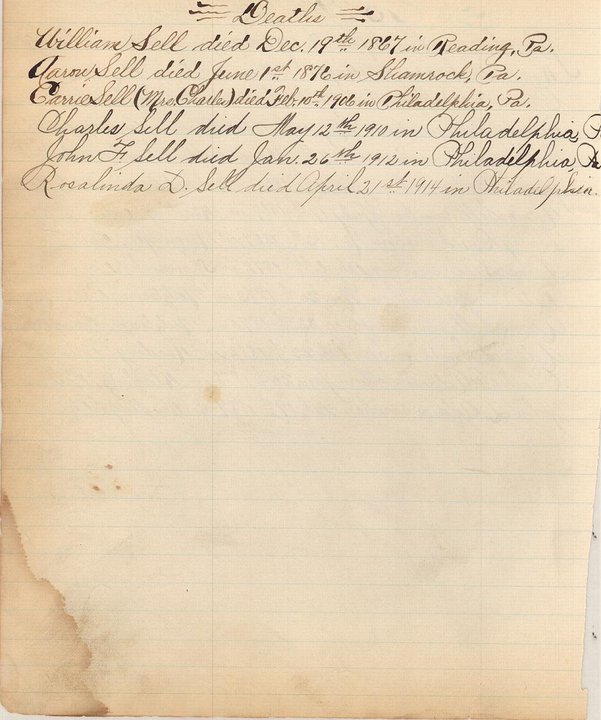 Deaths
William Sell died Dec. 19th 1867 in Reading, Pa.
Aaron Sell died June 1st 1876 in Shamrock, Pa.
Carrie Sell (Mrs. Charles) died Feb. 10th 1906 in Philadelphia, Pa.
Charles Sell died May 12th 1910 in Philadelphia, P
John F. Sell died Jan. 26th 1912 in Philadelphia, Pa
Rosalinda D. Sell died April 21st 1914 in Philadelphia.